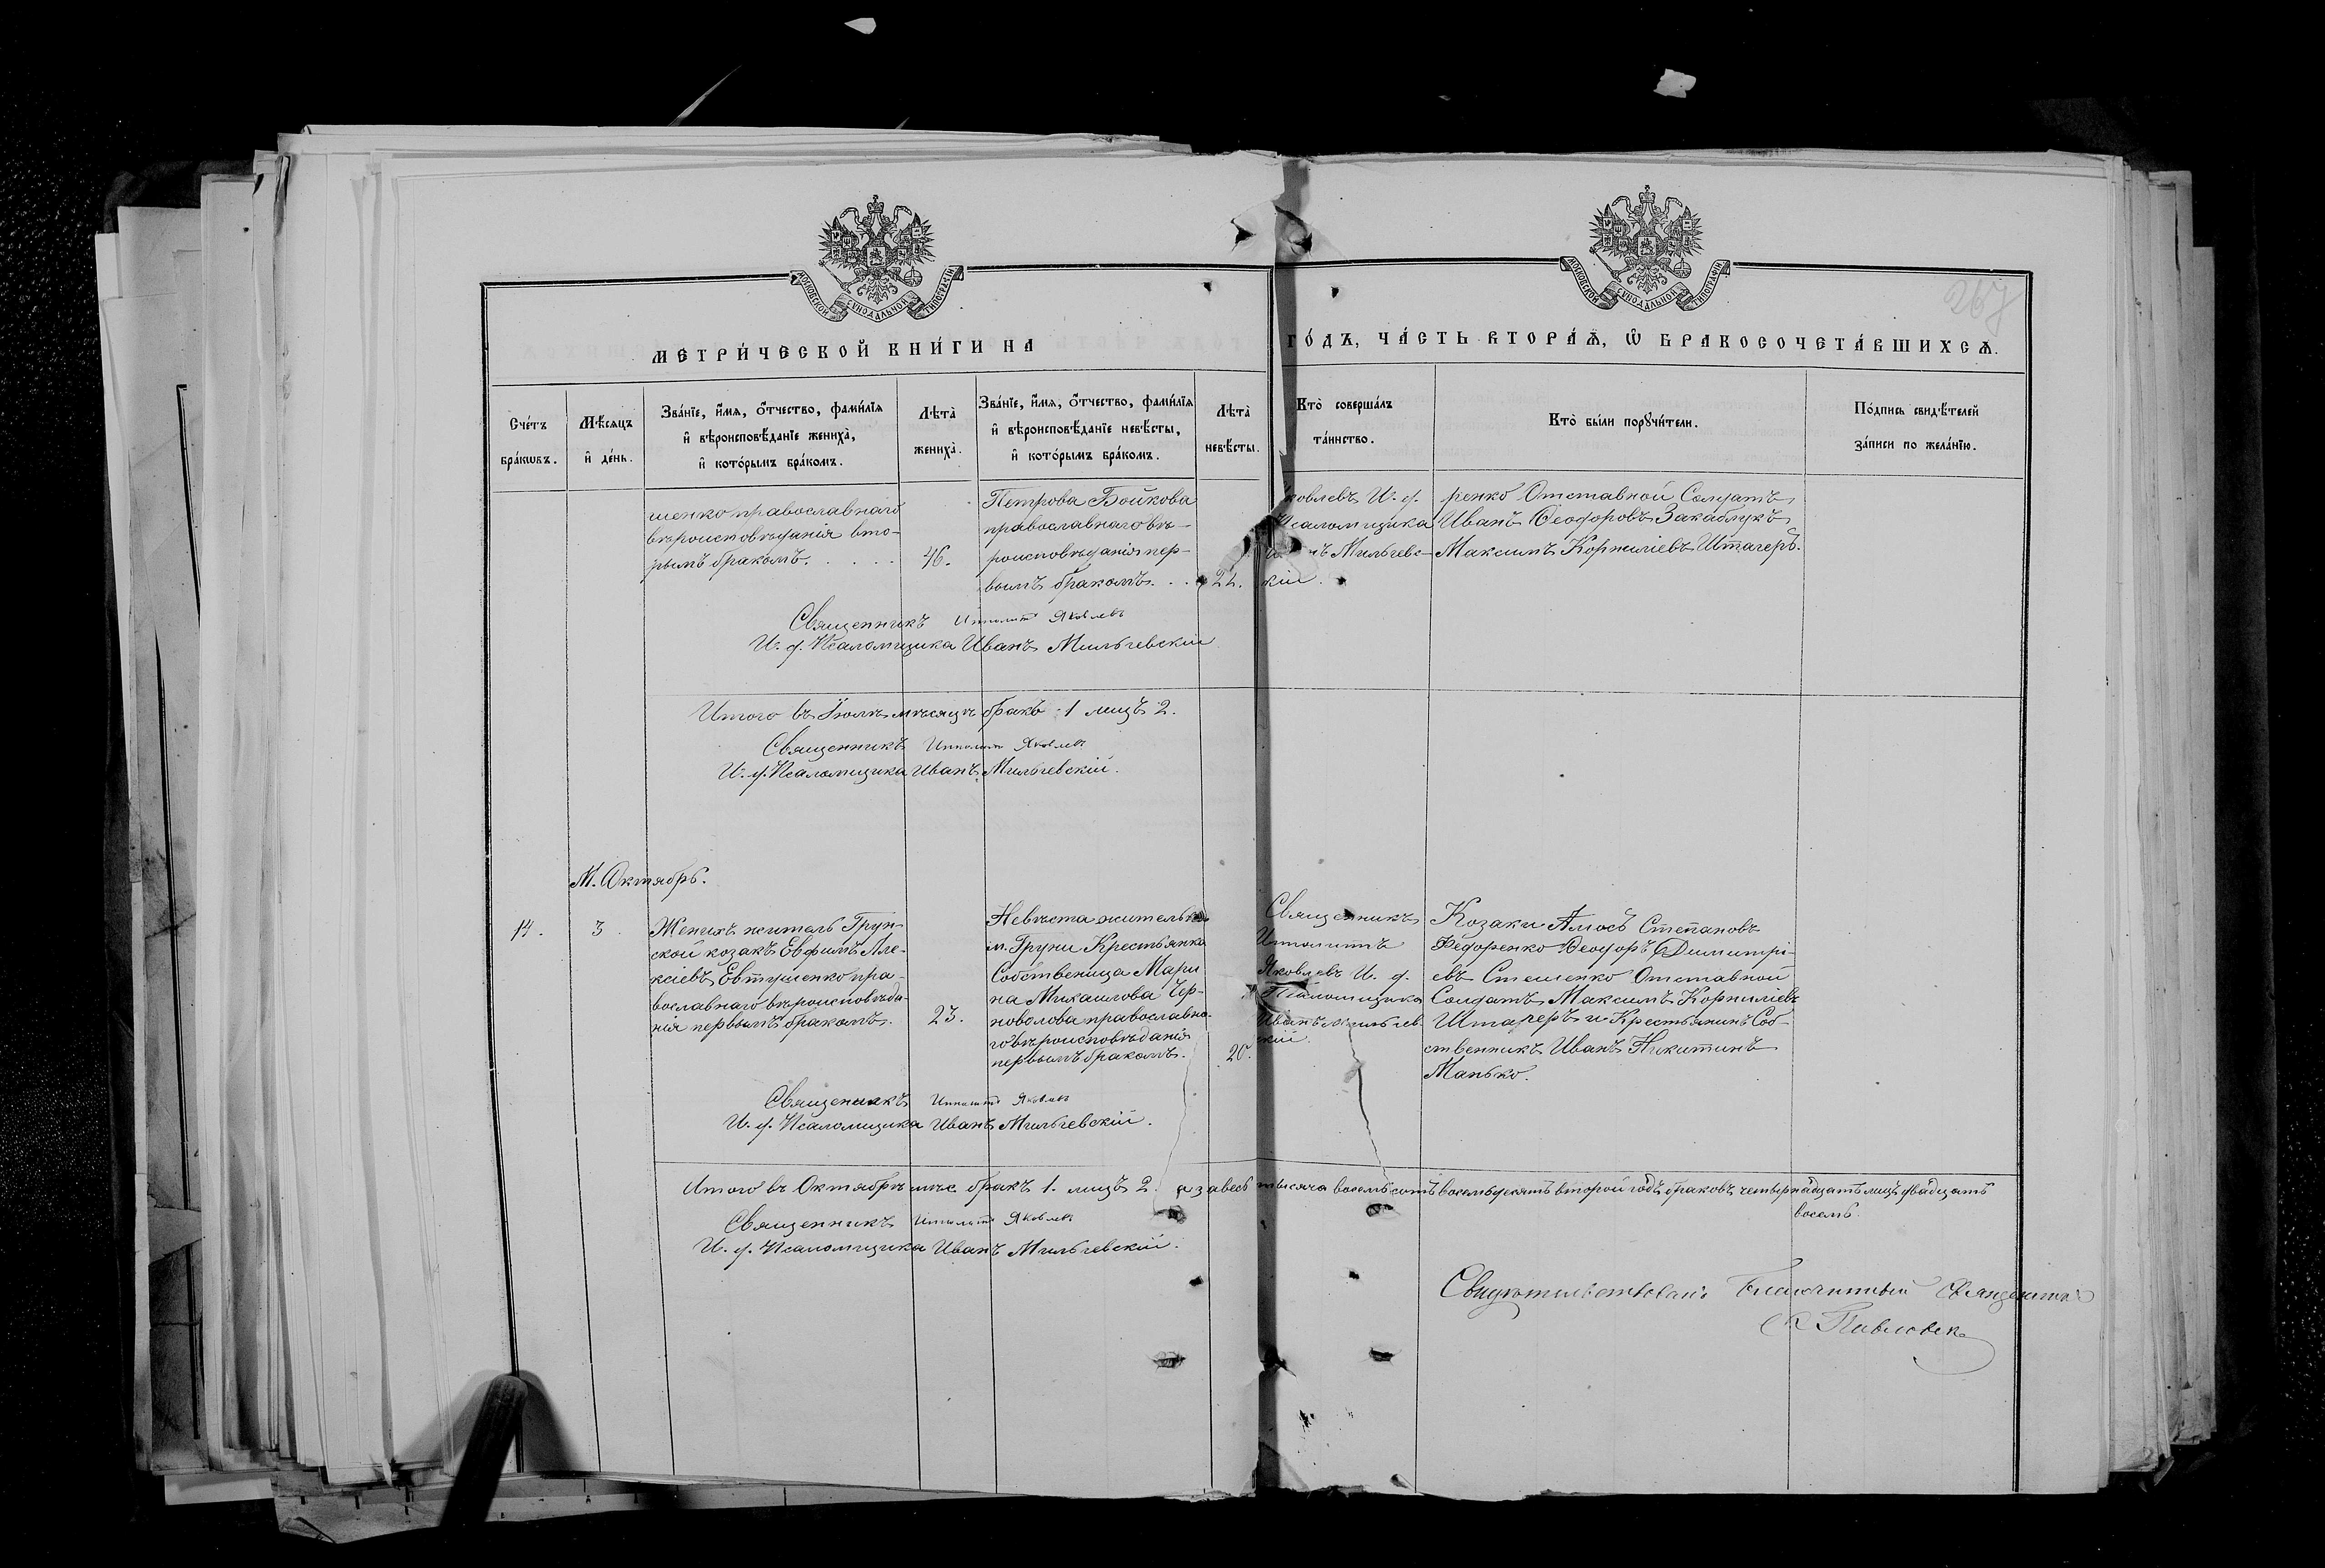 МОСКОВСКОЙ СѴНОДАЛЬНОЙ ТИПОГРАФІИ
МОСКОВСКОЙ СѴНОДАЛЬНОЙ ТИПОГРАФІИ
267
МЕТРИ́ЧЕСКОЙ КНИ́ГИ НА
ГО́ДЪ, ЧА́СТЬ ВТОРА́Ѧ, Ѡ҆ БРАКОСОЧЕТА́ВШИХСѦ.
Сче́тъ бра́кѡвъ.
Мѣ́сяцъ и҆ де́нь.
Зва́нїе, и҆́мѧ, ѻ҆́тчество, фами́лїѧ и҆ вѣроисповѣ́данїе жениха̀, и҆ кото́рымъ бра́комъ.
Лѣта̀ жениха̀.
Зва́нїе, и҆́мѧ, ѻ҆́тчество, фами́лїѧ и҆ вѣроисповѣ́данїе невѣ́сты, и҆ кото́рымъ бра́комъ.
Лѣта̀ невѣ́сты.
Кто̀ соверша́лъ та́инство.
Кто̀ бы́ли порꙋчи́тели.
По́дпись свидѣ́телей за́писи по жела́нїю.
шенко православнаго
вѣроисповѣданія вто-
рымъ бракомъ.
46.
Петрова Бойкова
православнаго вѣ-
роисповѣданія пер-
вымъ бракомъ.
ковлевъ И. д.
Псаломщика
Мильчевс-
кій.
ренко Отставной Солдатъ
Иванъ Ѳеодоровъ Закаблукъ
Максимъ Корниліевъ Штагеръ.
Священникъ Ипполитъ Яковлевъ
И. д. Псаломщика Иванъ Мильчевскій
Итого въ Іюлѣ мѣсяцѣ бракъ 1 лицъ 2.
Священникъ Ипполитъ Яковлевъ
И. д. Псаломщика Иванъ Мильчевскій.
М. Октябрь.
14.
3.
Женихъ житель Грун-
ской козакъ Евфимъ Але-
ксіевъ Евтушенко пра-
вославнаго вѣроисповѣда-
нія первымъ бракомъ.
23.
Невѣста жителька
м. Груни Крестьянка
Собственица Мари
на Михаилова Чер-
новолова православна-
го вѣроисповѣданія
первымъ бракомъ.
20.
Священникъ
Ипполитъ
Яковлевъ И. д.
Псаломщика
Иванъ Мильчев
скій.
Козаки Амосъ Степановъ
Федоренко Ѳеодоръ Димитрі-
евъ Стешенко Отставной
Солдатъ Максимъ Корниліевъ
Штагеръ и Крестьянинъ Соб-
ственникъ Иванъ Никитинъ
Манько.
Священникъ Ипполитъ Яковлевъ
И. д. Псаломщика Иванъ Мильчевскій.
Итого въ Октябрѣ м-це бракъ 1. лицъ 2. а за весь тысяча восемьсотъ восемьдесятъ второй годъ браковъ четырнадцать лицъ двадцать
восемь.
Священникъ Ипполитъ Яковлевъ
И. д. Псаломщика Иванъ Мильчевскій.
Свидѣтельствовалъ Благочинный Священникъ